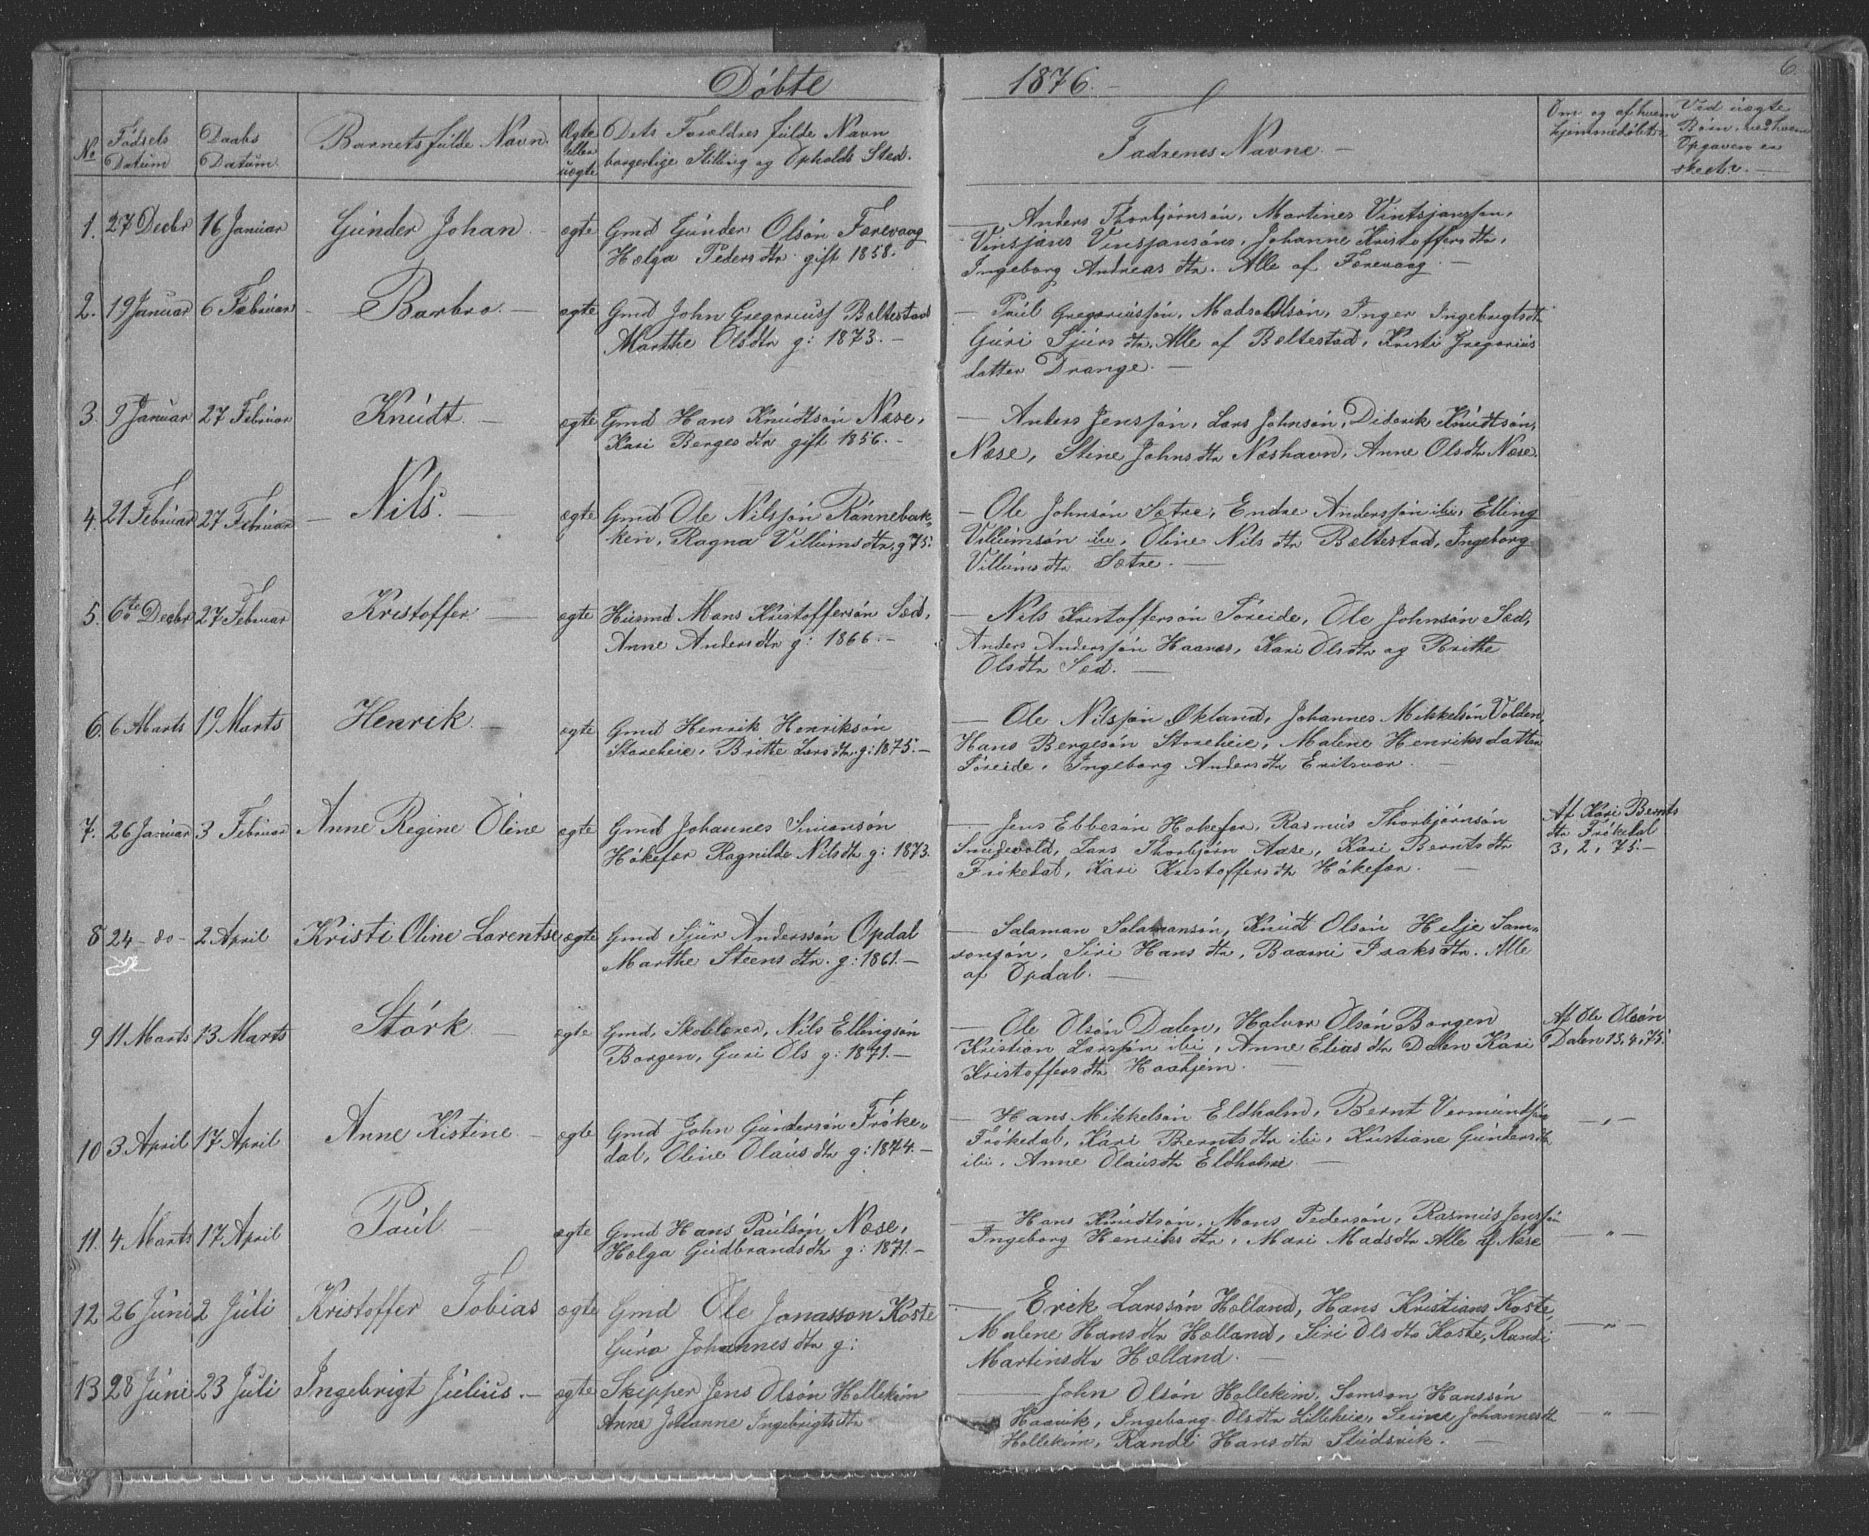 Døbte 1876.
6.
No
Fødsels Datum
Daabs Datum
Barnets fulde Navn
Ægte eller uægte
Dets Forældres fulde Navn borgerlige Stilling og Opholds Sted.
Faddrenes Navne.
Om og af hvem hjemmedøbt
Ved uægte Børn, ved hvem Opgaven er skeet.
1. 27 Decbr 16 Januar Günder Johan ægte Gmd Günder Olsøn Førevaag
Helga Pedersdtr gift 1858.
Anders Thorbjørnsøn, Martines Vintsjansøn,
Vinsjans Vinsjansøns, Johanne Kristoffersdtr,
Ingeborg Andreasdtr. Alle af Førevaag
2. 19 Januar 6 Februar Barbro ægte Gmd John Gregoriusf Bæltestad
Marthe Olsdtr g: 1873.
Paul Gregoriusføn, Mads Olsøn, Inger Ingebrigtsdtr
Guri Sjursdtr, Alle af Bæltestad, Kristi Gregorius
datter Drange.
3. 9 Januar 27 Februar Knüdt ægte Gmd Hans Knüdtsøn Næse,
Kari Bergesdtr gift 1856.
Anders Jensføn, Lars Johnsøn, Diderik Knüdtsøn,
Næse, Stine Johnsdtr Næshavn, Anne Olsdtr Næse.
4. 21 Februar 27 Februar Nils. ægte Gmd Ole Nilsføn Rønnebak-
ken, Ragna Villumsdtr, g 75.
Ole Johnsøn Sætre, Endre Andersføn ibi, Elling
Villumsøn ibi, Oline Nilsdtr Bæltestad, Ingeborg
Villumsdtr Sætre.
5. 6te Decbr 27 Februar Kristoffer ægte Husmd Mons Kristoffersøn Sæd,
Anne Andersdtr g: 1866.
Nils Kristoffersøn Søreide, Ole Johnsøn Sæd,
Anders Andersføn Haanes, Kari Olsdtr og Brithe
Olsdtr Sæd.
6. 6 Marts 19 Marts Henrik ægte Gmd Henrik Henriksøn
Storeheie, Brithe Larsdtr. g: 1875.
Ole Nilsføn Økland, Johannes Mikkelsøn Volden,
Hans Bergesøn Storeheie, Malene Henriksdatter
Søreide, Ingeborg Andersdtr Eritsvær.
7. 26 Januar 3 Februar Anne Regine Oline ægte Gmd Johannes Simonsøn
Høkefær Ragnilde Nilsdtr g: 1873.
Jens Ebbesøn Hokefær, Rasmus Thorbjørnsøn
Smedevold, Lars Thorbjørn Aase, Kari Berntsdtr
Frøkedal, Kari Kristoffersdtr Høkefær.
Af Kari Bernts
dtr Frøkedal
3, 2, 75.
8 24 - do - 2 April Kristi Oline Larentse ægte Gmd Sjur Anderssøn Opdal
Marthe Steensdtr. g: 1861.
Salaman Salamansøn, Knudt Olsøn Helje Sam-
sonsøn, Siri Hansdtr, Baarni Isaksdtr. Alle
af Opdal.
9 11 Marts 13 Marts Størk ægte Gmd, Skolelærer, Nils Ellingsøn
Borgen, Guri Ols g: 1871.
Ole Olsøn Dalen, Halvor Olsøn Borgen
Kristian Larsføn ibi, Anne Eliasdtr Dalen Kari
Kristoffersdtr Haahjem.
Af Ole Olsøn
Dalen 13, 4, 75.
10 3 April 17 April Anne Kistine ægte Gmd John Gundersøn Frøke-
dal, Oline Olausdtr g: 1874.
Hans Mikkelsøn Eldholm, Bernt Vermundføn
Frøkedal, Kari Berntsdtr ibi, Kristiane Gundersdtr
ibi, Anne Olausdtr Eldholm
11. 4 Marts 17 April Paul ægte Gmd Hans Paulsøn Næse,
Helga Gudbrandsdtr g: 1871.
Hans Knudtsøn, Mons Pedersøn, Rasmus Jensføn
Ingeborg Henriksdtr, Mari Madsdtr Alle af Næse
- " -
12 26 Juni 2 Juli Kristoffer Tobias ægte Gmd Ole Jonasson Koste
Guro Johannesdtr g:
Erik Larssøn Holland, Hans Kristians Koste
Malene Hansdtr Hælland, Siri Olsdtr Koste, Randi
Martinsdtr Hælland.
- " -
13 28 Juni 23 Juli Ingebrigt Julius. ægte Skipper Jens Olsøn Hollekim
Anne Johanne Ingebrigtsdtr
John Olsøn Hollekim, Samson Hanssøn
Haavik, Ingeborg Olsdtr Lilleheie, Johannesdtr
Hollekim, Randi Hansdtr Studsvik.
- " -